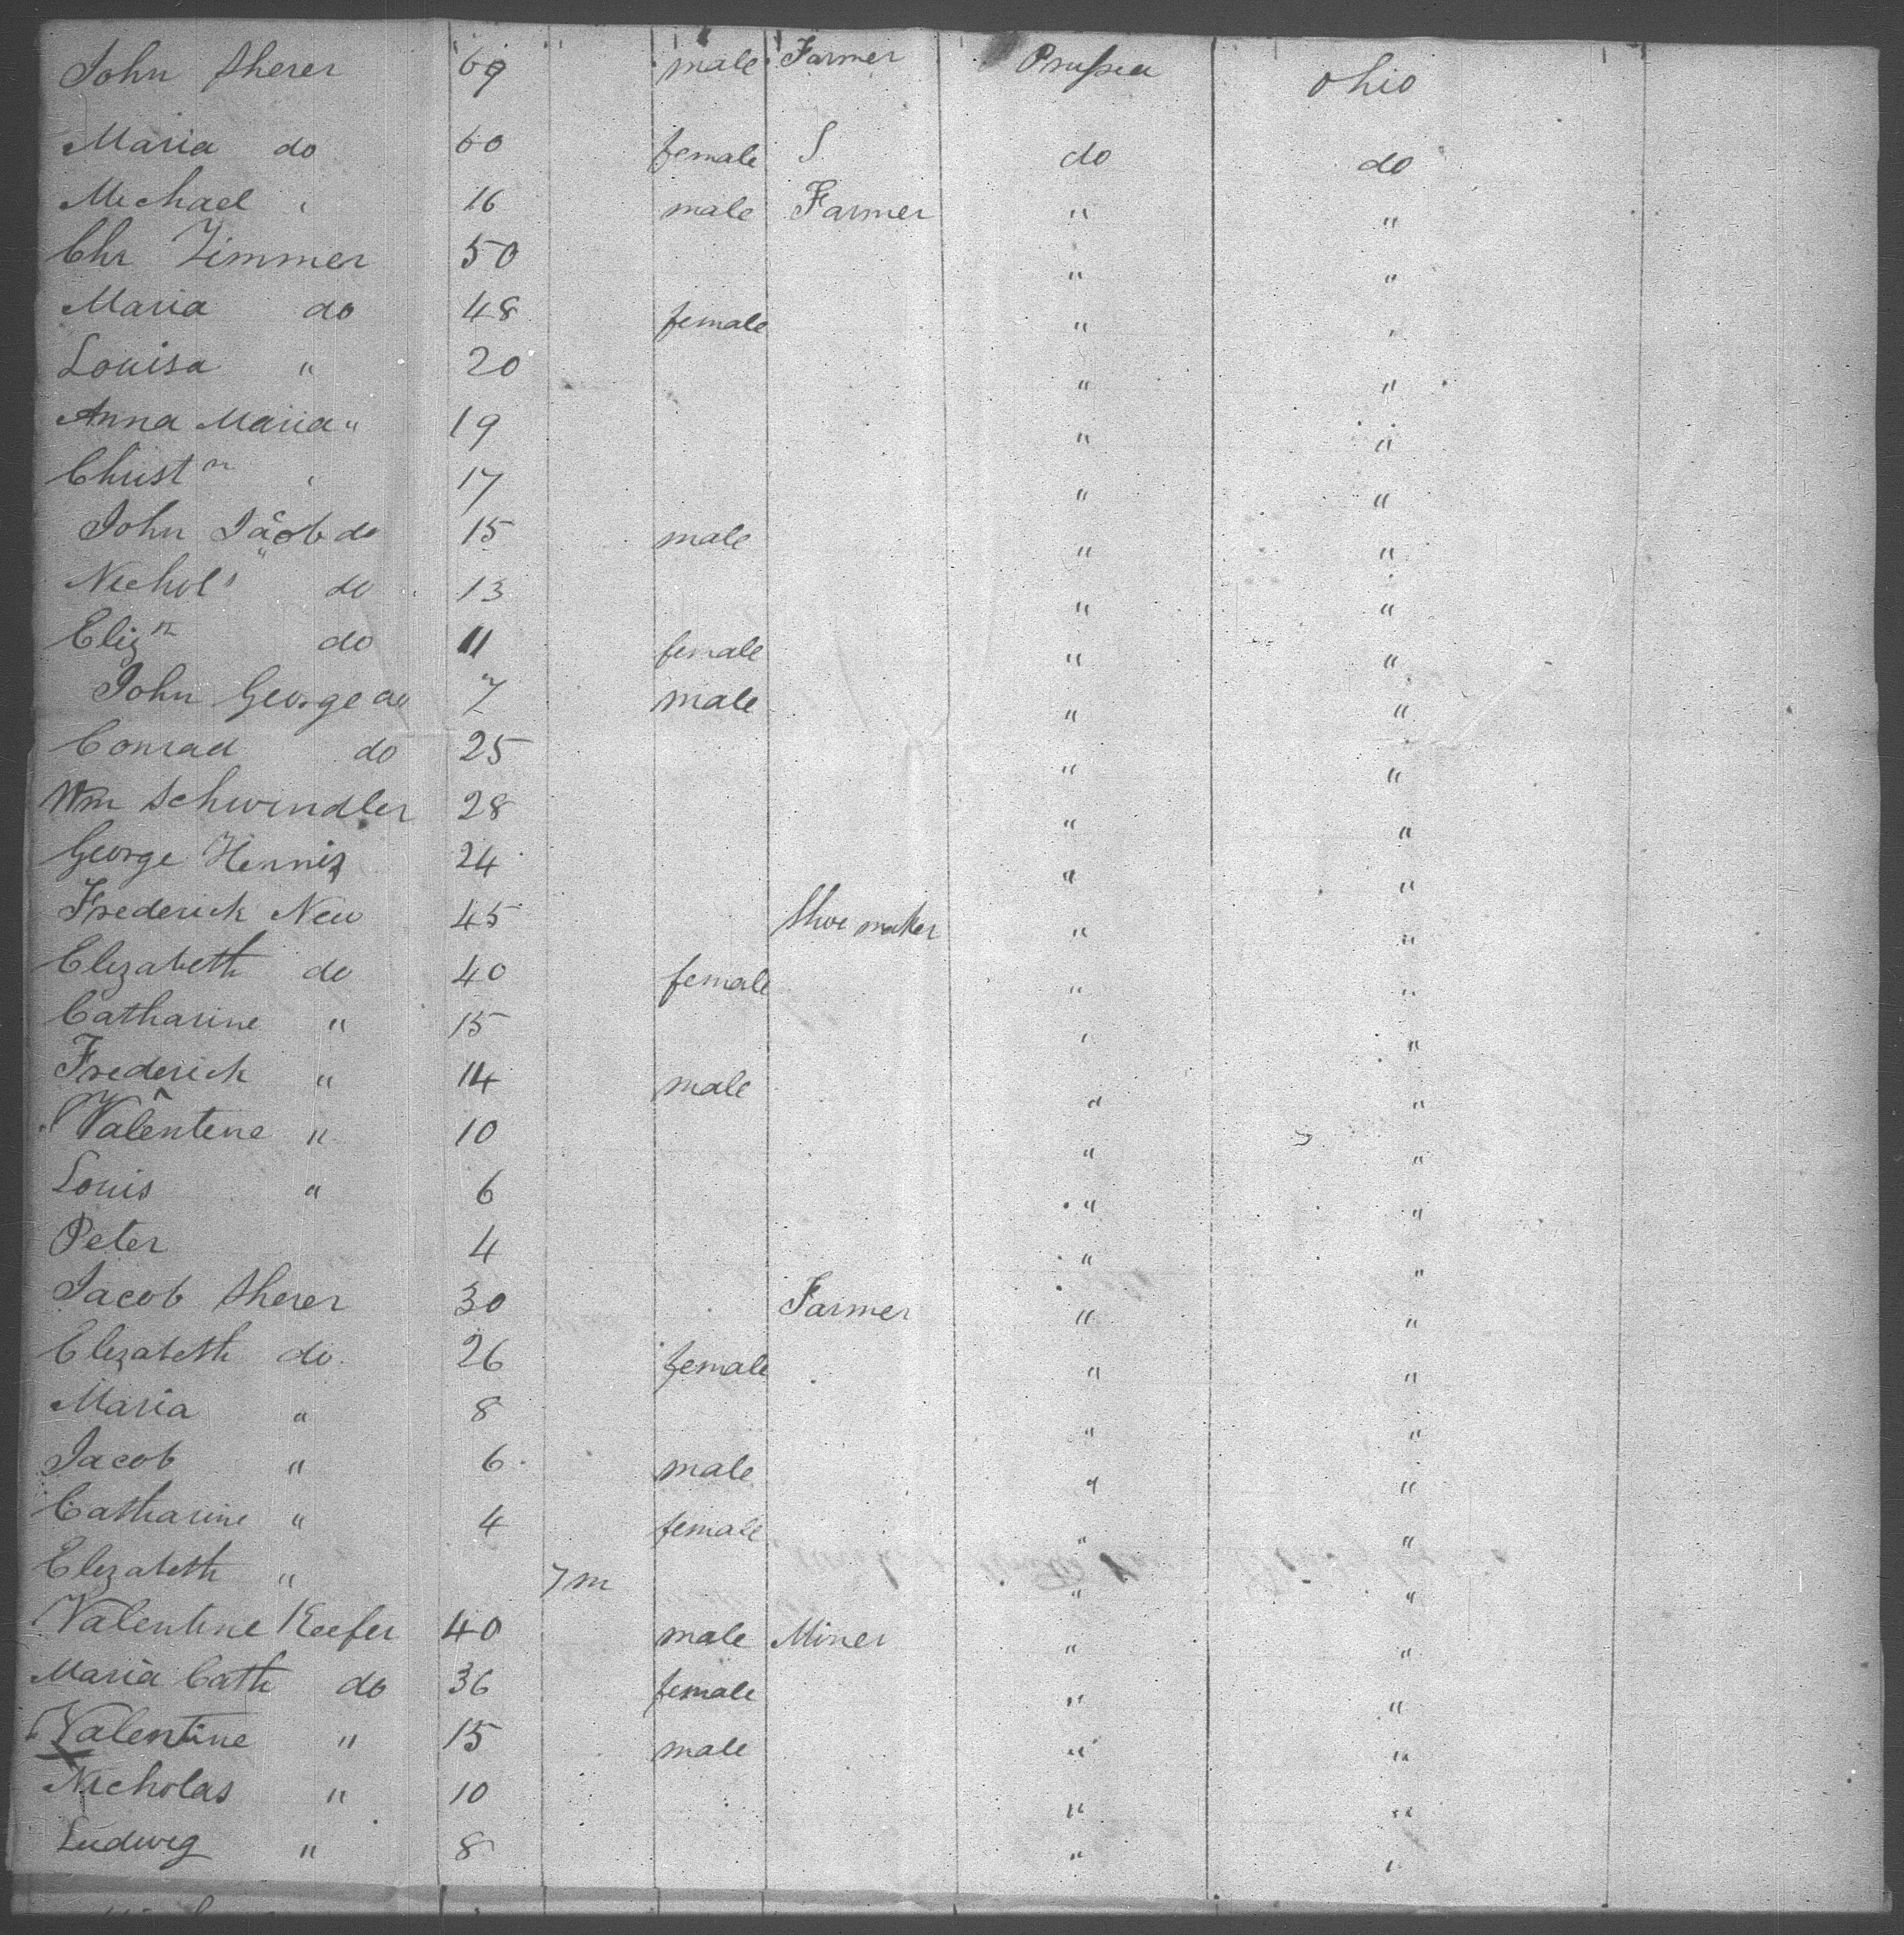 John Sherer 69 male Farmer Prussia Ohio
Maria do 60 female S do do
Michael " 16 male Farmer " "
Chr Zimmer 50 " "
Maria do 48 female " "
Louisa " 20 " "
Anna Maria " 19 " "
Christn " 17 " "
John Jacob do 15 male " "
Nichols do 13 " "
Elizh do 11 female " "
John George do 7 male " "
Conrad do 25 " "
Wm Schwindler 28 " "
George Hennig 24 " "
Frederick New 45 Shoe maker " "
Elizabeth do 40 female " "
Catharine " 15 " "
Frederick " 14 male " "
Valentine " 10 " "
Louis " 6 " "
Peter 4 " "
Jacob Sherer 30 Farmer " "
Elizabeth do 26 female " "
Maria " 8 " "
Jacob " 6 male " "
Catharine " 4 female " "
Elizabeth " 7m " "
Valentine Keefer 40 male Miner " "
Maria Cath do 36 female " "
Valentine " 15 male " "
Nicholas " 10 " "
Ludwig " 8 " "